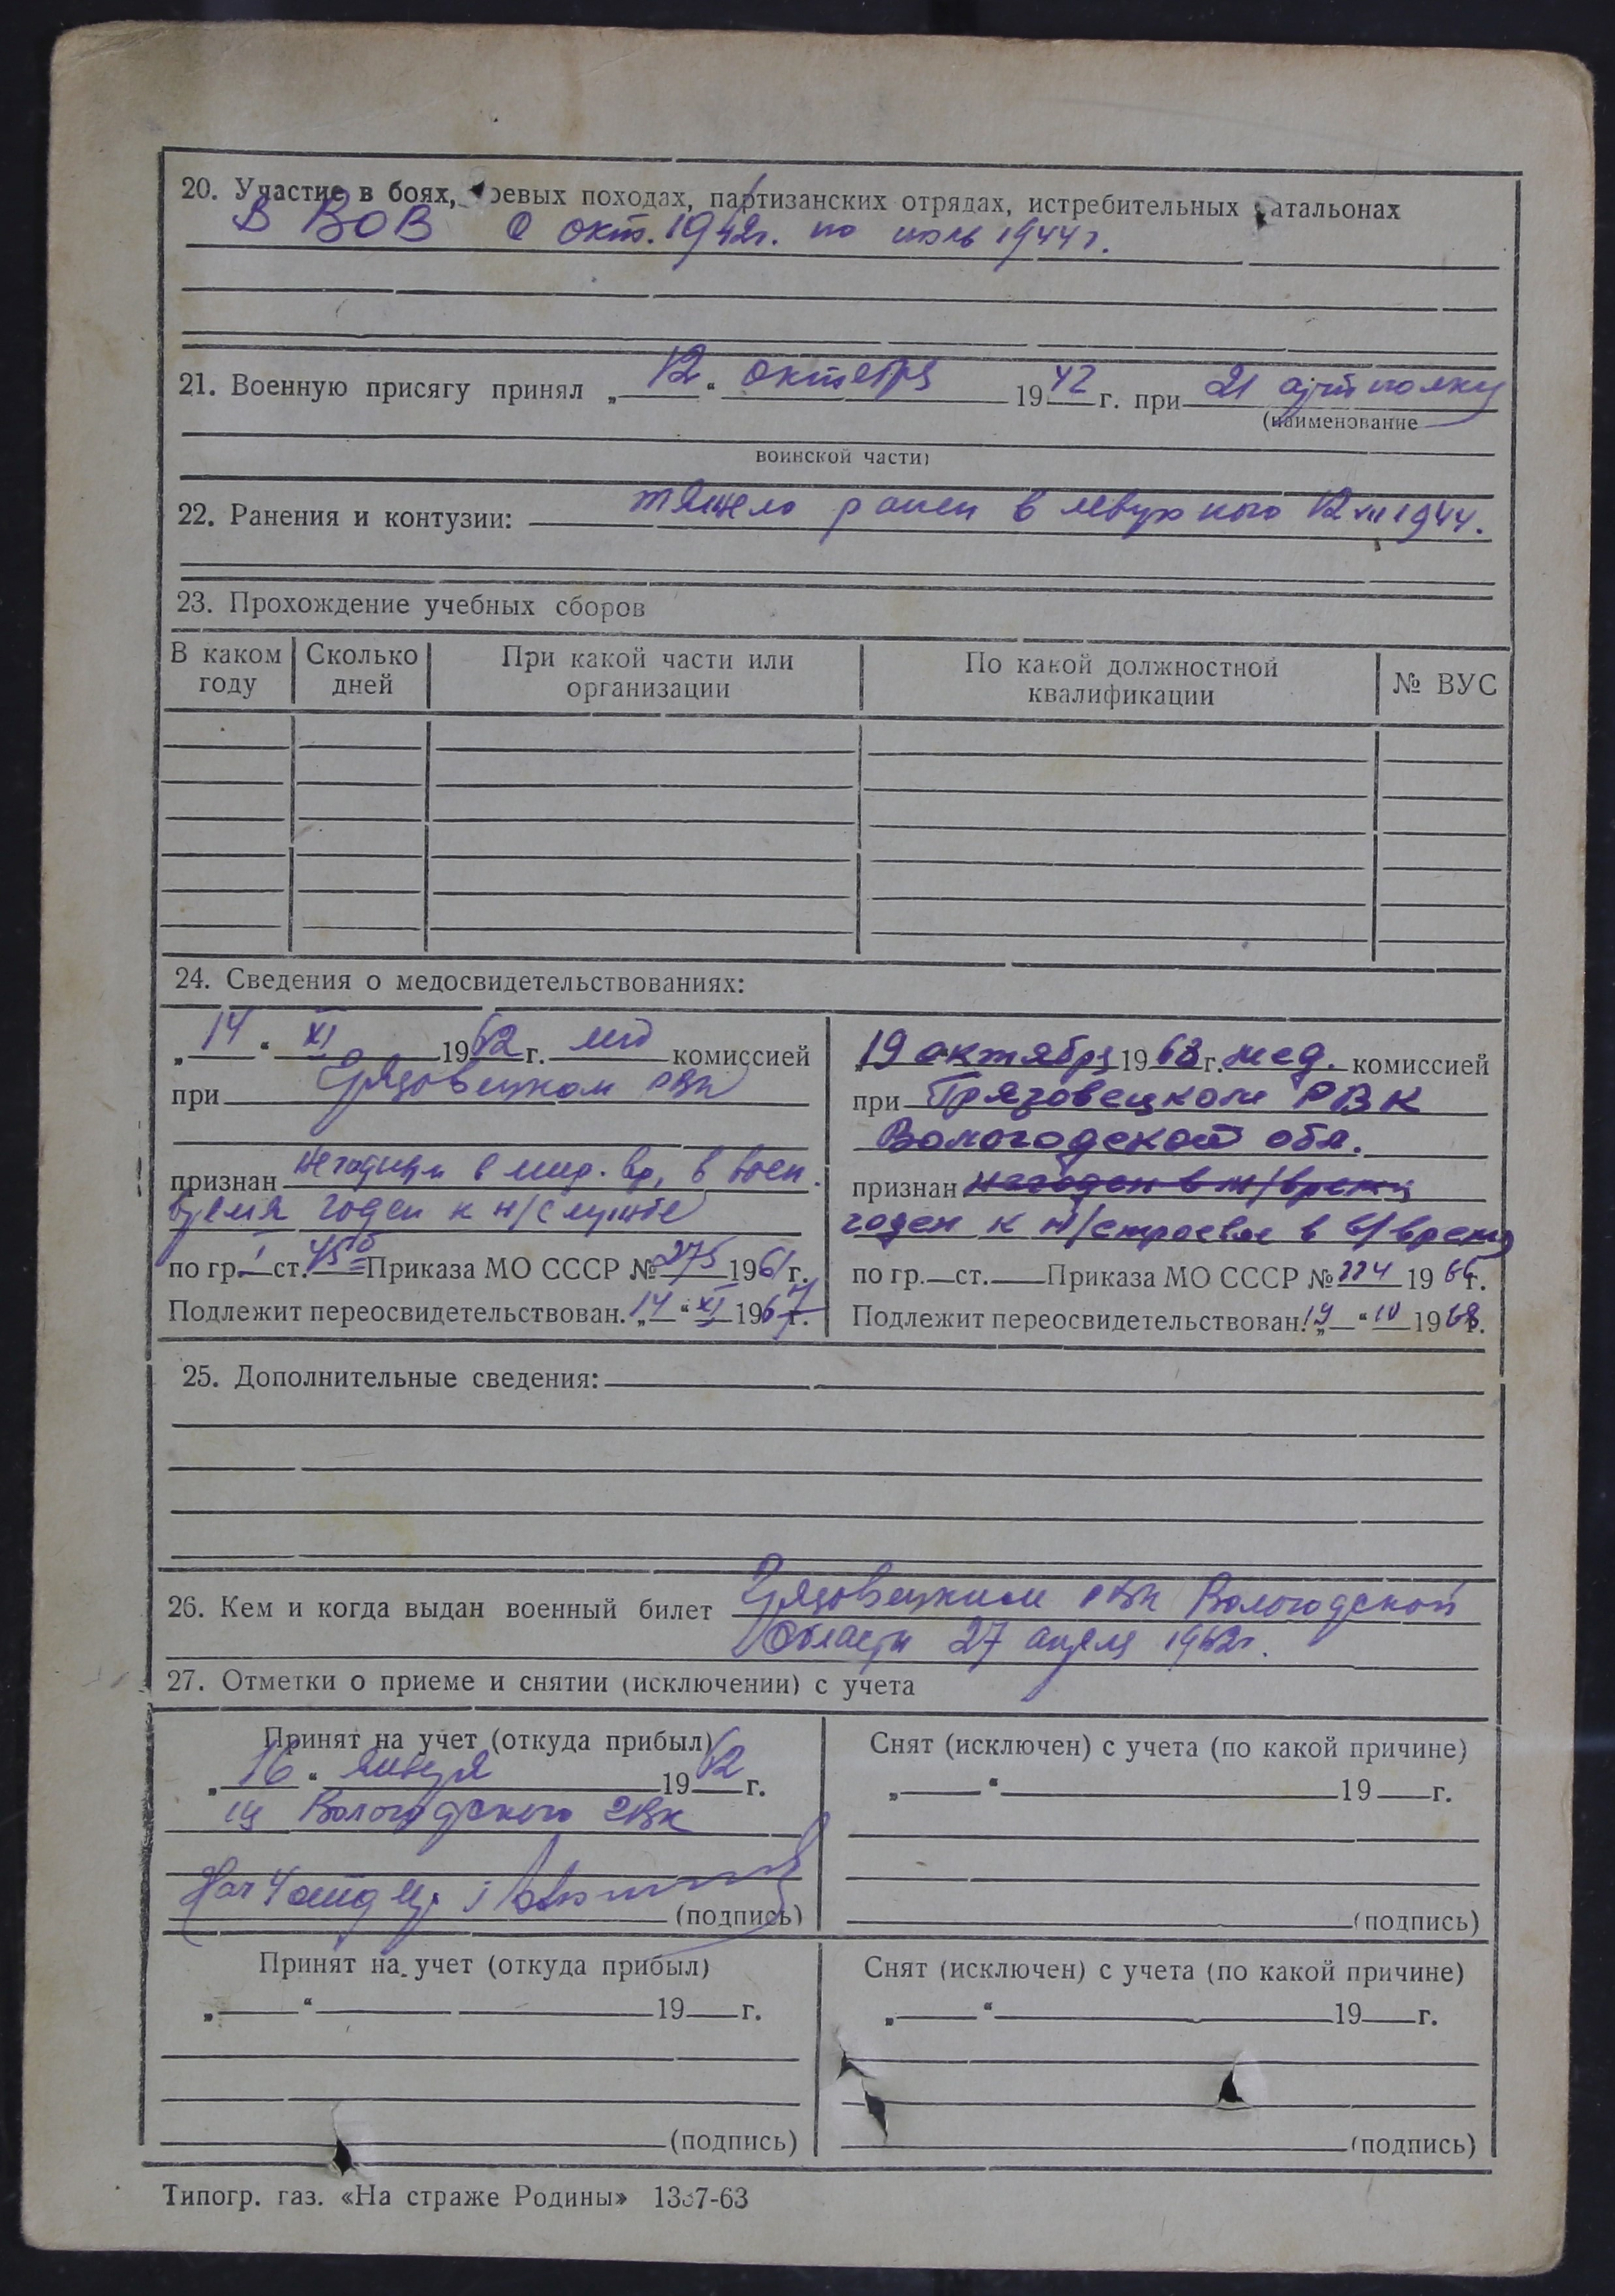 20. Участие в боях, боевых походах, партизанских отрядах, истребительных батальонах
В ВОВ с окт. 1942г. по июль 1944г.
21. Военную присягу принял „12“ октября 1942 г. при 21 артполку
(наименование
воинской части)
22. Ранения и контузии: тяжело ранен в левую ногу 12 VII 1944.
23. Прохождение учебных сборов
В каком году
Сколько дней
При какой части или организации
По какой должностной квалификации
№ ВУС
24. Сведения о медосвидетельствованиях:
„14“ XI 1962 г. мед комиссией
при Грязовецком РВК
признан негодным в мир. вр, в воен.
время годен к н/службе
по гр. I ст. 45б Приказа МО СССР № 275 1961 г.
Подлежит переосвидетельствован. „14“ XI 1967 г.
19 октября 1968 г. мед. комиссией
при Грязовецком РВК
Вологодской обл.
признан негоден в м/время
годен к н/строевой в в/время
по гр. ст. Приказа МО СССР № 224 1966 г.
Подлежит переосвидетельствован. „19“ 10 1968 г.
25. Дополнительные сведения:
26. Кем и когда выдан военный билет Грязовецким РВК Вологодской
области 27 апреля 1962г.
27. Отметки о приеме и снятии (исключении) с учета
Принят на учет (откуда прибыл)
„16“ января 1962 г.
из Вологодского ГВК
Нач 4 отд
(подпись)
Снят (исключен) с учета (по какой причине)
„ “ 19 г.
(подпись)
Принят на учет (откуда прибыл)
„ “ 19 г.
(подпись)
Снят (исключен) с учета (по какой причине)
„ “ 19 г.
(подпись)
Типогр. газ. «На страже Родины»